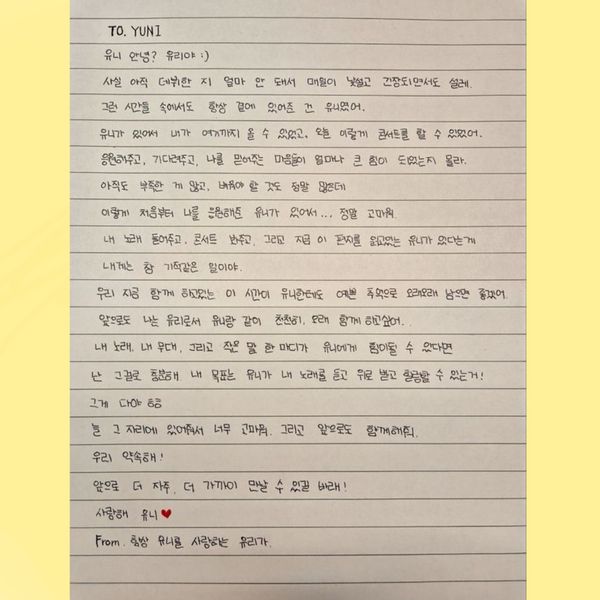 TO. YUNI
유니 안녕? 유리야 :)
사실 아직 데뷔한 지 얼마 안 돼서 매일이 낯설고 긴장되면서도 설레.
그런 시간들 속에서도 항상 곁에 있어준 건 유니였어.
유니가 있어서 내가 여기까지 올 수 있었고, 오늘 이렇게 콘서트를 할 수 있었어.
응원해주고, 기다려주고, 나를 믿어주는 마음들이 얼마나 큰 힘이 되었는지 몰라.
아직도 부족한 게 많고, 배워야 할 것도 정말 많은데
이렇게 처음부터 나를 응원해준 유니가 있어서... 정말 고마워.
내 노래 들어주고, 콘서트 와주고, 그리고 지금 이 편지를 읽고있는 유니가 있다는게
내게는 참 기적같은 일이야.
우리 지금 함께 하고있는 이 시간이 유니한테도 예쁜 추억으로 오래오래 남으면 좋겠어.
앞으로도 나는 유리로서 유니랑 같이 천천히, 오래 함께 하고싶어.
내 노래, 내 무대, 그리고 작은 말 한 마디가 유니에게 힘이될 수 있다면
난 그걸로 충분해 내 목표는 유니가 내 노래를 듣고 위로 받고 힐링할 수 있는거!
그게 다야 ㅎㅎ
늘 그 자리에 있어줘서 너무 고마워. 그리고 앞으로도 함께해줘.
우리 약속해!
앞으로 더 자주, 더 가까이 만날 수 있길 바래!
사랑해 유니 ♥
From. 항상 유니를 사랑하는 유리가.